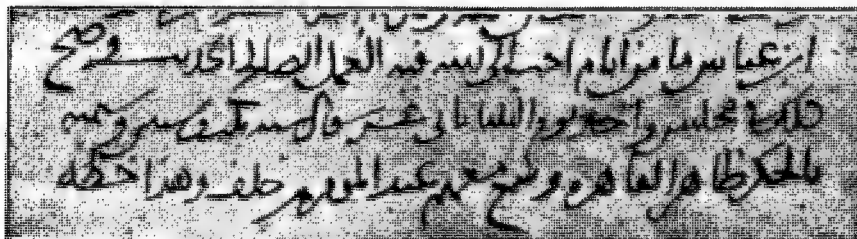 ابن عباس ما من ايام احب الى الله فيه العمل الصالح الحديث وصح
في مجلس واحد يوم الثلثا ثاني عشر سنة وستميه
بالحكر ظاهر القاهره وسمع معهم عبد المومن بن خلف وهذا خطه